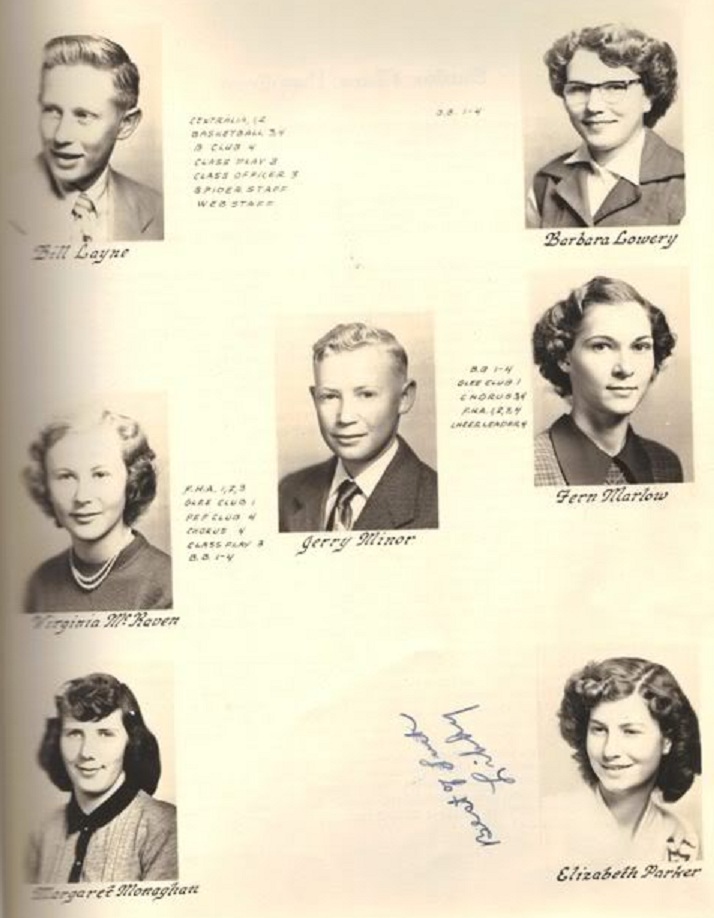 CENTRALIA, 1,2
BASKETBALL 3,4
B CLUB 4
CLASS PLAY 3
CLASS OFFICER 3
SPIDER STAFF
WEB STAFF
Bill Layne
B.B. 1-4
Barbara Lowery
B.B 1-4
GLEE CLUB 1
CHORUS 3,4
F.H.A. 1,2,3,4
CHEERLEADER 4
Fern Marlow
Jerry Minor
F.H.A. 1,2,3
GLEE CLUB 1
PEP CLUB 4
CHORUS 4
CLASS PLAY 3
B.B. 1-4
Virginia McRaven
Margaret Monaghan
Best of Luck
Libby
Elizabeth Parker